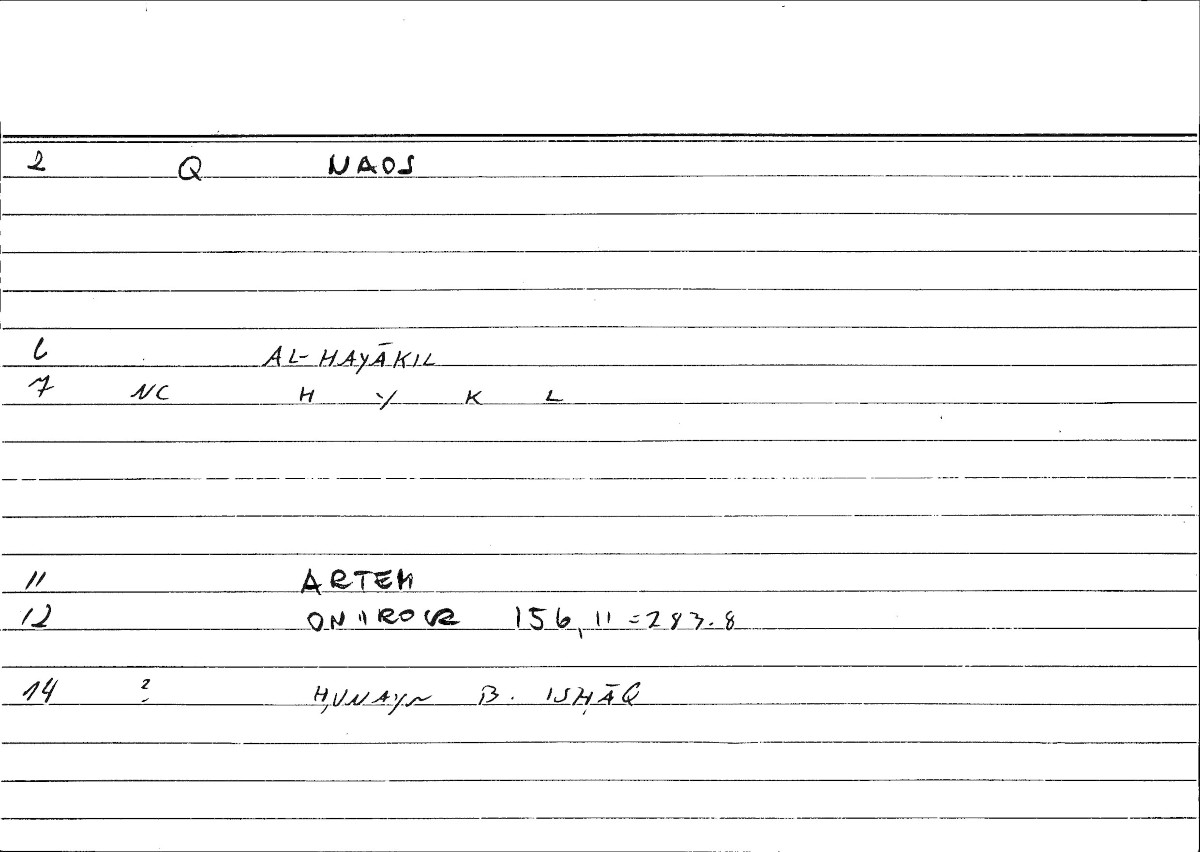 2 Q NAOS
6 AL-HAYĀKIL
7 NC H Y K L
11 ARTEM
12 ONIROCR 156,11=283.8
14 ? ḤUNAYN B. ISḤĀQ